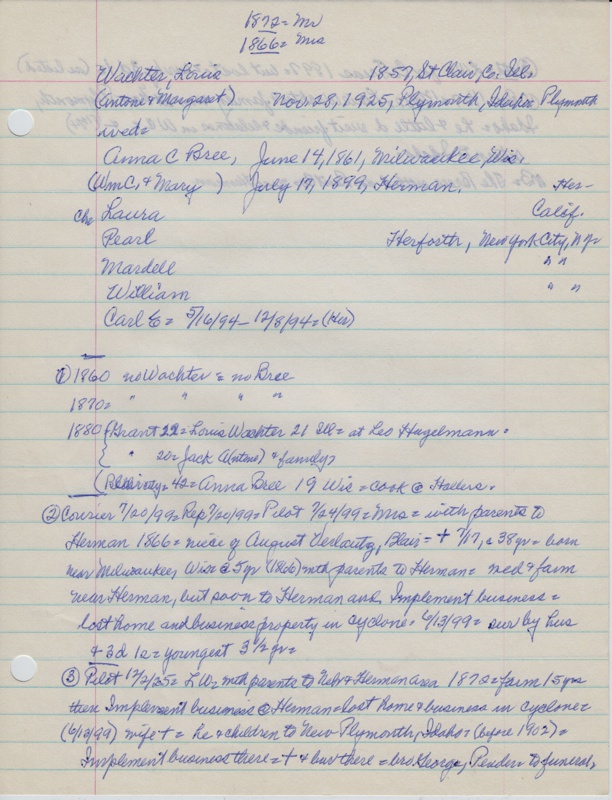 1872 = Mr
1866 = Mrs
Wachter, Louis 1857, St Clair, Co. Ill.
(Antone & Margaret) Nov 28, 1925, Plymouth, Idaho = Plymouth
wed =
Anna C Bree, June 14, 1861, Milwaukee, Wis.
(Wm C, & Mary ) July 17, 1899, Herman. Her-
Ch = Laura Calif.
Pearl Herforth, New York City, N.Y.
Mardell " "
William " "
Carl E = 5/16/94 - 12/8/94 = (Her)
① 1860 no Wachter = no Bree
1870 = " " " "
1880 { Grant 22 = Louis Wachter 21 Ill = at Leo Hugelmann.
" 20 = Jack A(ntone) & family,
42 = Anna Bree 19 Wis = cook @
② Courier 7/20/99 = Rep 7/20/99 = Pilot 7/24/99 = Mrs = with parents to
Herman 1866 = niece of August Blair = + 7/17, = 38 yr = born
near Milwaukee, Wis = @ 5 yr (1866) with parents to Herman = wed & farm
near Herman, but soon to Herman and Implement business =
lost home and business property in cyclone. 6/13/99 = sur by hus
& 3d 1s = youngest 3 1/2 yr =
③ Pilot 12/2/25 = LW = with parents to Nebr & Herman area 1872 = farm 15 yrs
then Implement business @ Herman = lost home & business in cyclone =
(6/13/99) wife + = he & children to New Plymouth, Idaho = (before 1902) =
Implement business there = + & bur there = bro George, Pender to funeral,